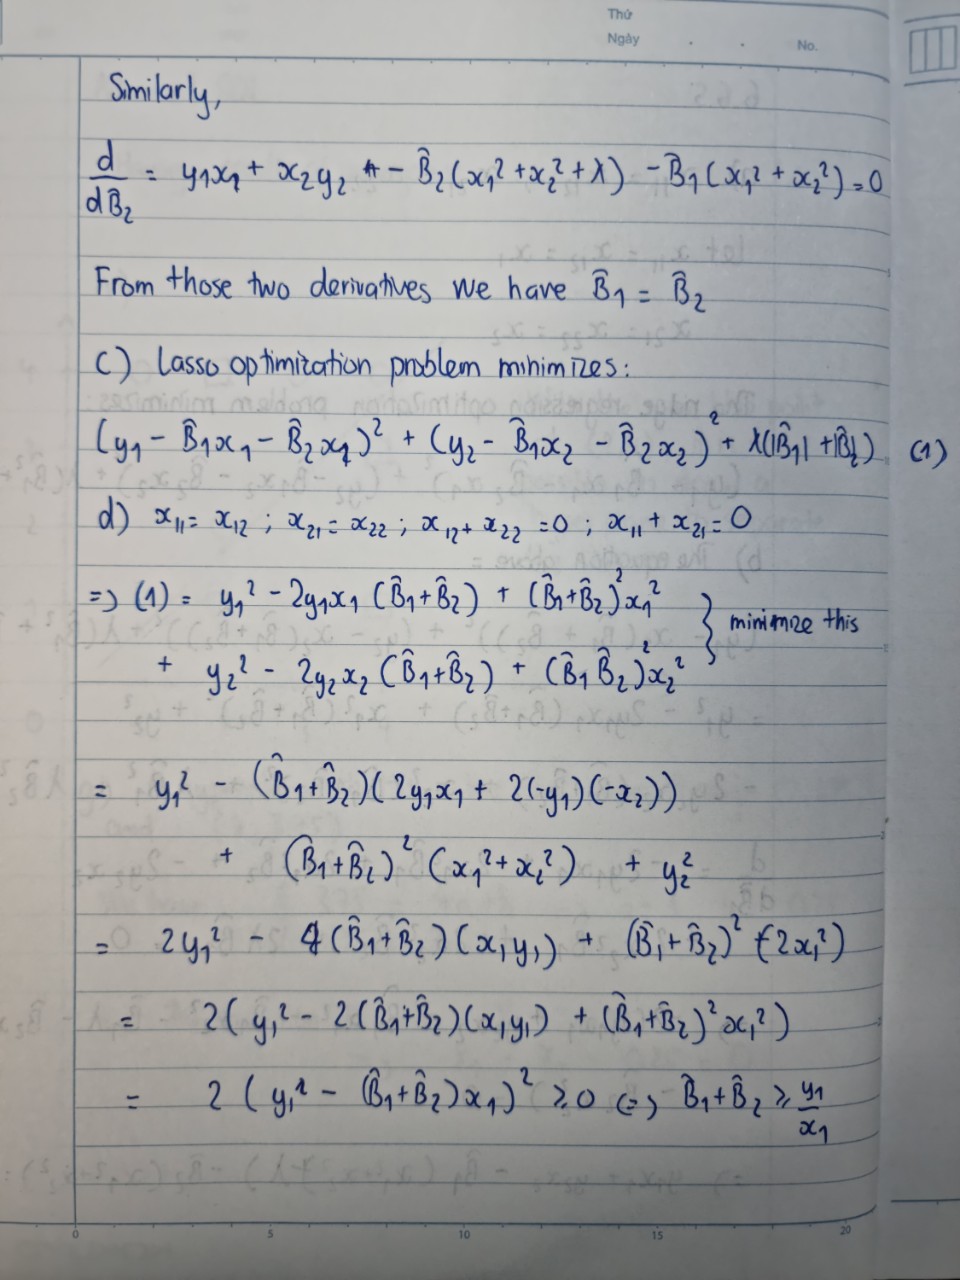 Thứ
Ngày . . No.
Similarly,
d/dB̂₂ = y₁x₁ + x₂y₂ - B̂₂(x₁² + x₂² + λ) - B̂₁(x₁² + x₂²) = 0
From those two derivatives we have B̂₁ = B̂₂
c) Lasso optimization problem minimizes:
(y₁ - B̂₁x₁ - B̂₂x₁)² + (y₂ - B̂₁x₂ - B̂₂x₂)² + λ(|B̂₁| + |B̂₂|) (1)
d) x₁₁ = x₁₂ ; x₂₁ = x₂₂ ; x₁₂ + x₂₂ = 0 ; x₁₁ + x₂₁ = 0
=> (1) = y₁² - 2y₁x₁(B̂₁+B̂₂) + (B̂₁+B̂₂)²x₁²
+ y₂² - 2y₂x₂(B̂₁+B̂₂) + (B̂₁ B̂₂)²x₂² } minimize this
= y₁² - (B̂₁+B̂₂)(2y₁x₁ + 2(-y₁)(-x₂))
+ (B̂₁+B̂₂)²(x₁²+x₂²) + y₂²
= 2y₁² - 4(B̂₁+B̂₂)(x₁y₁) + (B̂₁+B̂₂)²(2x₁²)
= 2(y₁² - 2(B̂₁+B̂₂)(x₁y₁) + (B̂₁+B̂₂)²x₁²)
= 2(y₁ - (B̂₁+B̂₂)x₁)² ≥ 0 (=> B̂₁+B̂₂ ≥ y₁/x₁
0 5 10 15 20